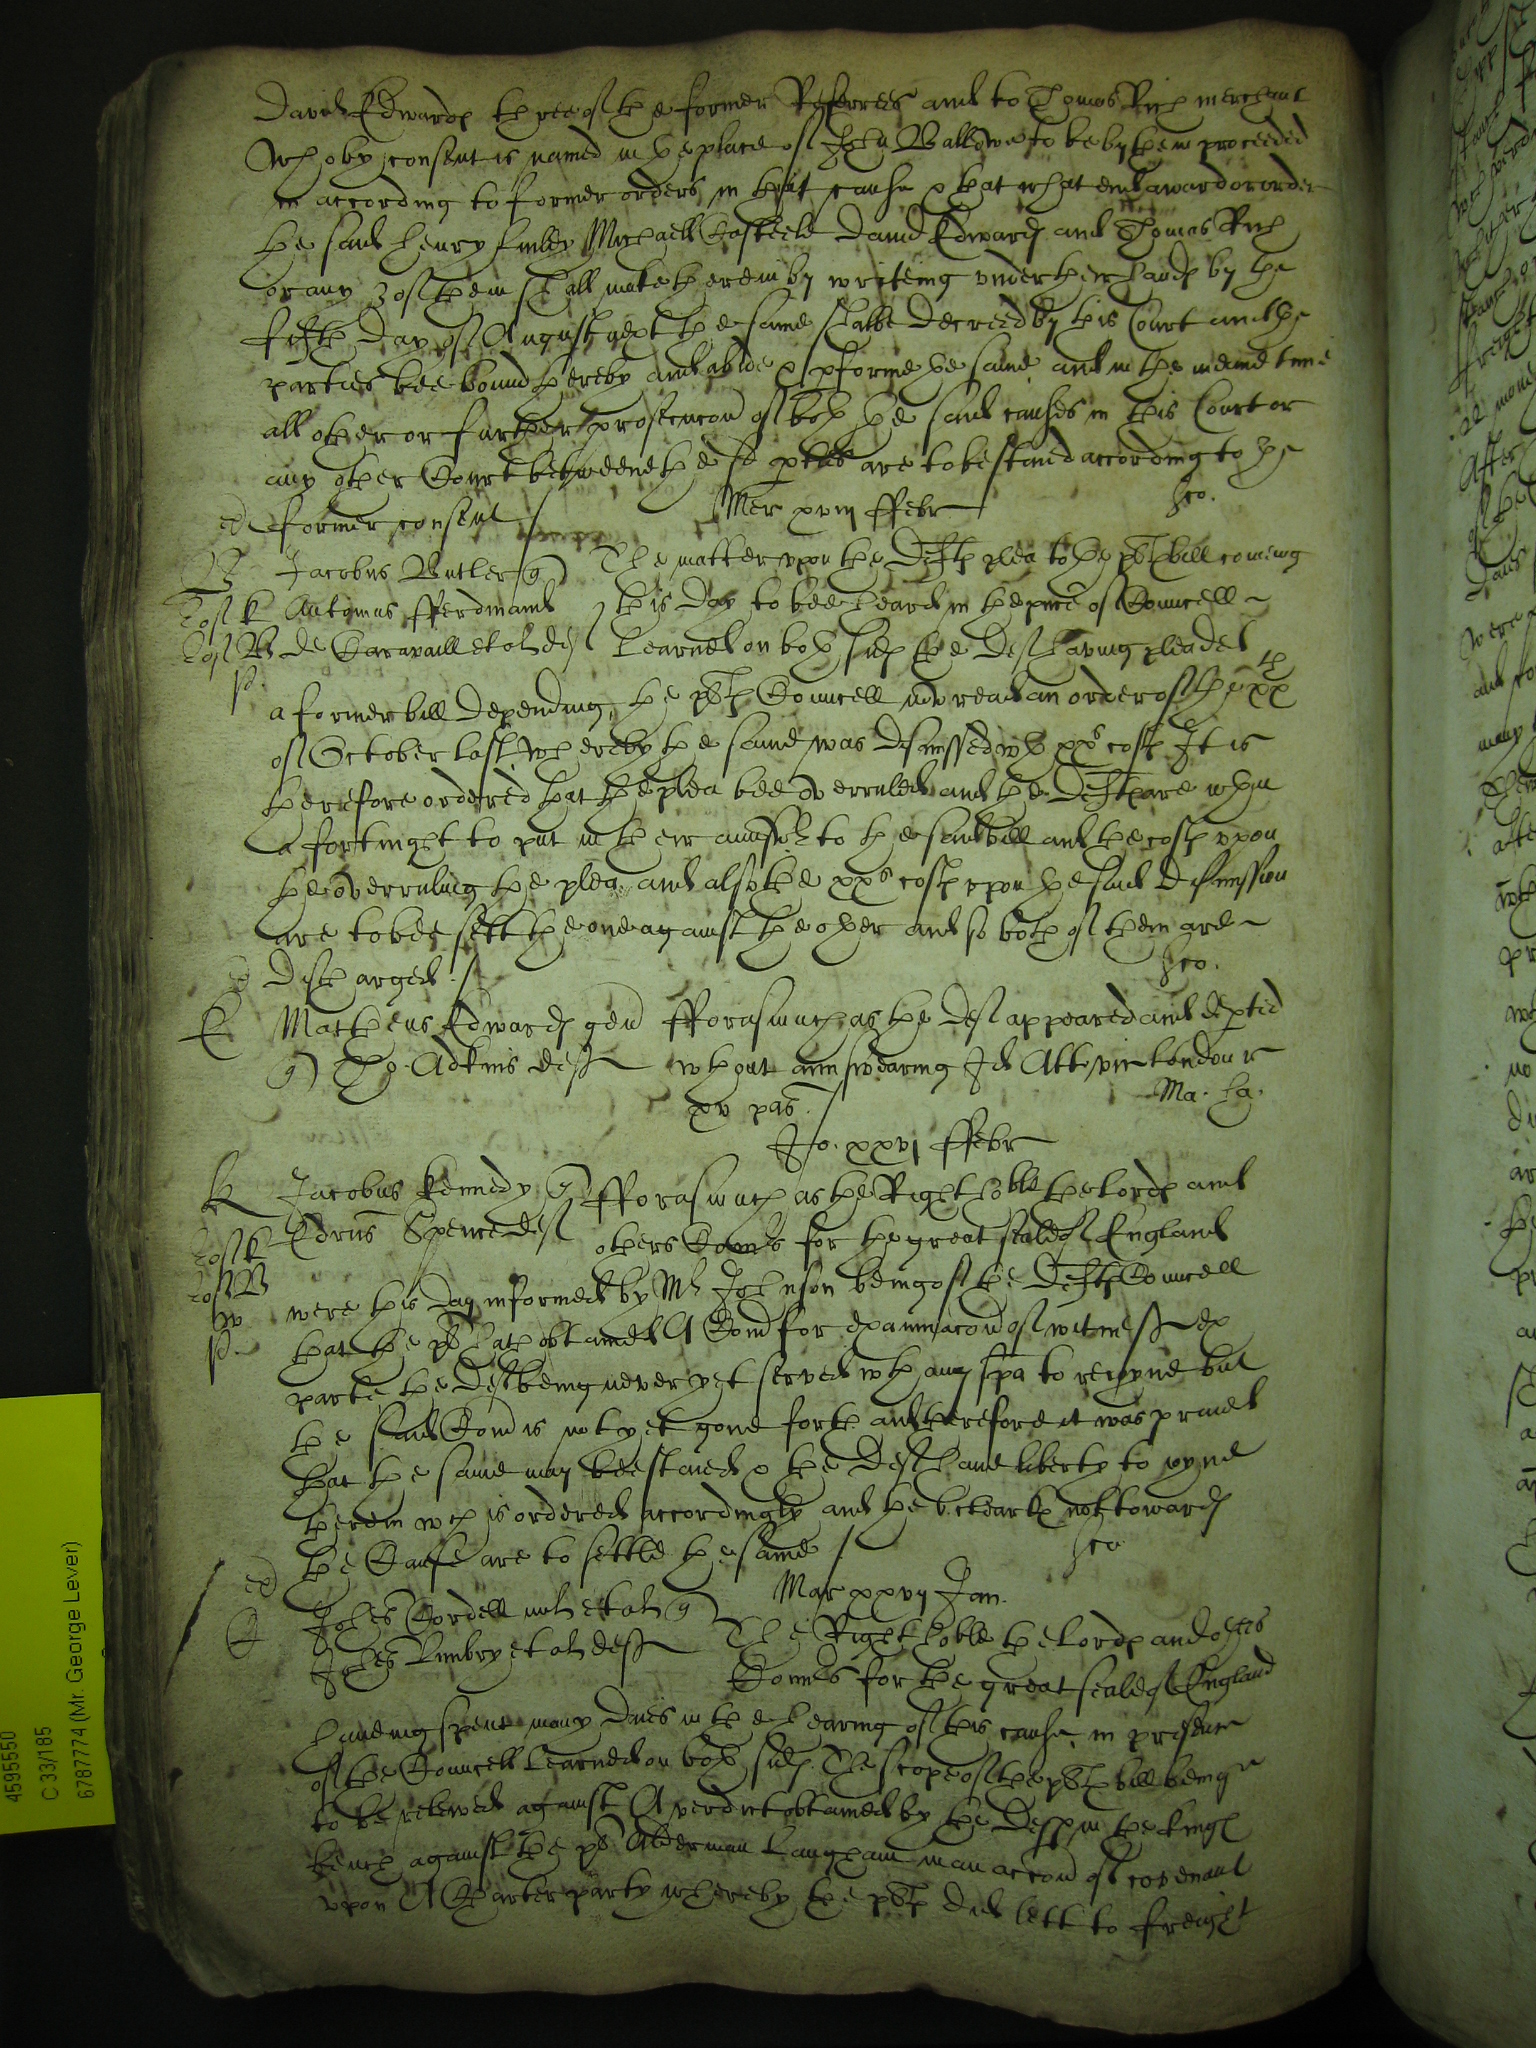 David Edwards three of the former Referrees and to Thomas Rich merchant
who by consent is named in the place of John Ballowe to be by them proceeded
in according to former orders in that cause & that what end award or order
the said Henry Michaell Casteele David Edwards and Thomas Rich
or any 3 of them shall make herein by writeing under their hands by the
fifth day of August next the same shalbe decreed by this Court and the
parties bee bound thereby and abide & pforme the same and in the meane time
all other or further prosecucon of both the said causes in this Court or
any other Court betweene the sd pties are to be staied according to the
former consent / Jco.
Mer xviij ffebr
B Jacobus Butler q The matter upon the Defts plea to the pls bill coming
Antonius fferdinand this day to bee heard in the pnce of Councell
de Caravaill et al def Learned on both sides the Def having pleaded
a former bill depending, the pls Councell now read an order of the xxth
of October last whereby the same was dismissed wth xxs costs It is
therefore ordered that the plea bee overruled and the Defts are wthin
a fortnight to put in their answer to the said bill and the costs upon
the overruling the plea and also the xxs costs upon the said dismission
are to bee sett the one against the other and so both of them are
discharged / Jco.
E Matheus Edwards gen fforasmuch as the Def appeared and depted
q Tho. Adkins def wthout annswearing Id Att vic London r
xv pas / Ma. Ha.
Jo. xxvj ffebr
K Jacobus Kennedy q fforasmuch as the Right hoble the Lords and
Edrus Spence def others Comrs for the great seale of England
were this day informed by Mr Johnson being of the Defts Councell
that the pl hath obtained A Com for examinacon of witnesses ex
parte the Def being never yet served wth any spa to rejoyne but
the said Com is not yet gone forth and therefore it was praied
that the same may bee staied & the Def have liberty to joyne
therein wch is ordered accordingly and the 6 clearks not towards
the Cause are to settle the same / Jco
Mar xxvij Jan.
C Johes Cordell mil et al q The Right hoble the Lords and others
Johes Limbry et al defs Comrs for the great seale of England
haveing spent many daies in the hearing of this cause, in presence
of the Councell Learned on both sides. The scope of the pls bill being
to be releived against A verdict obtained by the Defts in the kings
bench against the pl Alderman Langham in an accon of covenant
upon A Charter party whereby the pls did lett to freight
4595550
C 33/185
6787774 (Mr. George Lever)